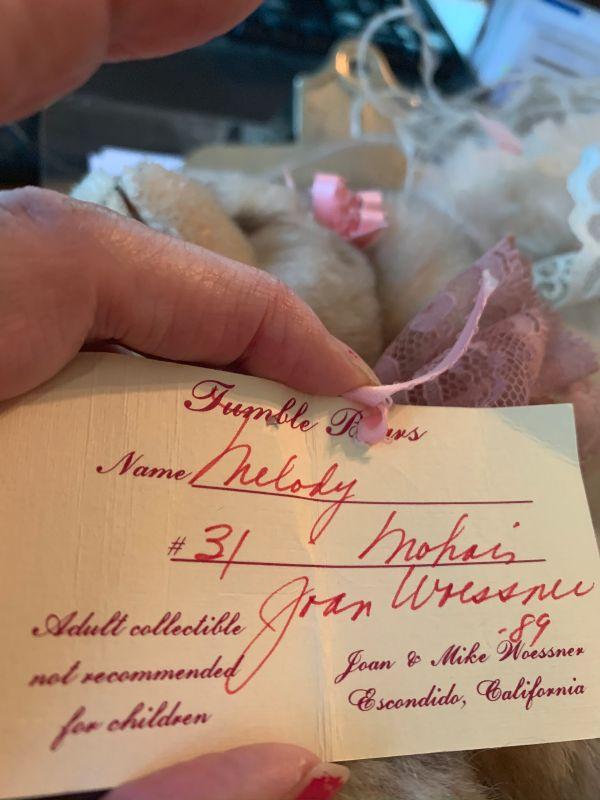 Fumble Bears
Name Melody
# 31 Mohair
Joan Woessner
-89
Adult collectible
not recommended
for children
Joan & Mike Woessner
Escondido, California